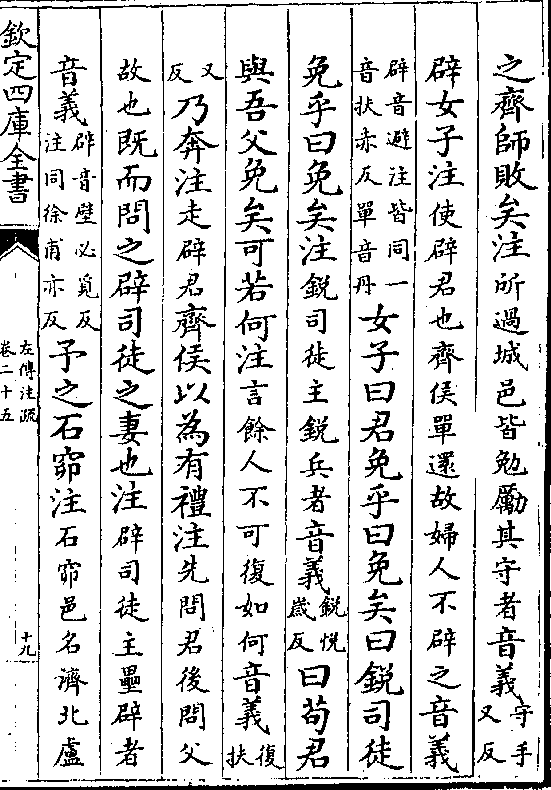 之齊師敗矣注所過城邑皆勉勵其守者音義守手又反
辟女子注使辟君也齊侯單還故婦人不辟之音義
辟音避注皆同一音扶赤反單音丹女子曰君免乎曰免矣曰銳司徒
免乎曰免矣注銳司徒主銳兵者音義銳悅歲反曰苟君
與吾父免矣可若何注言餘人不可復如何音義復扶
又反乃奔注走辟君齊侯以為有禮注先問君後問父
故也既而問之辟司徒之妻也注辟司徒主壘辟者
音義辟音壁必覓反注同徐甫亦反予之石窌注石窌邑名濟北盧
欽定四庫全書
左傳注疏
卷二十五
十九